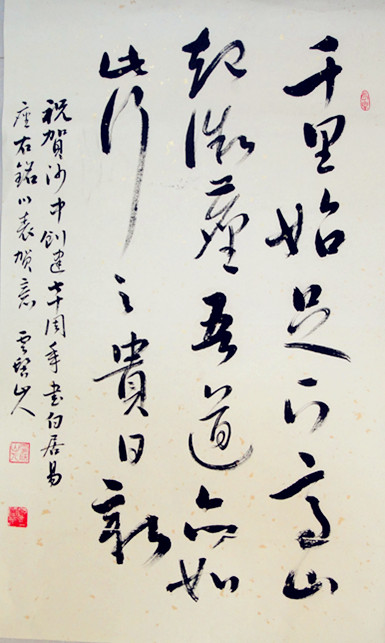 千里始足下高山
起微塵吾道亦如
此行之貴日新
祝賀沙中创建七十周年書白居易
座右銘以表贺意 山人